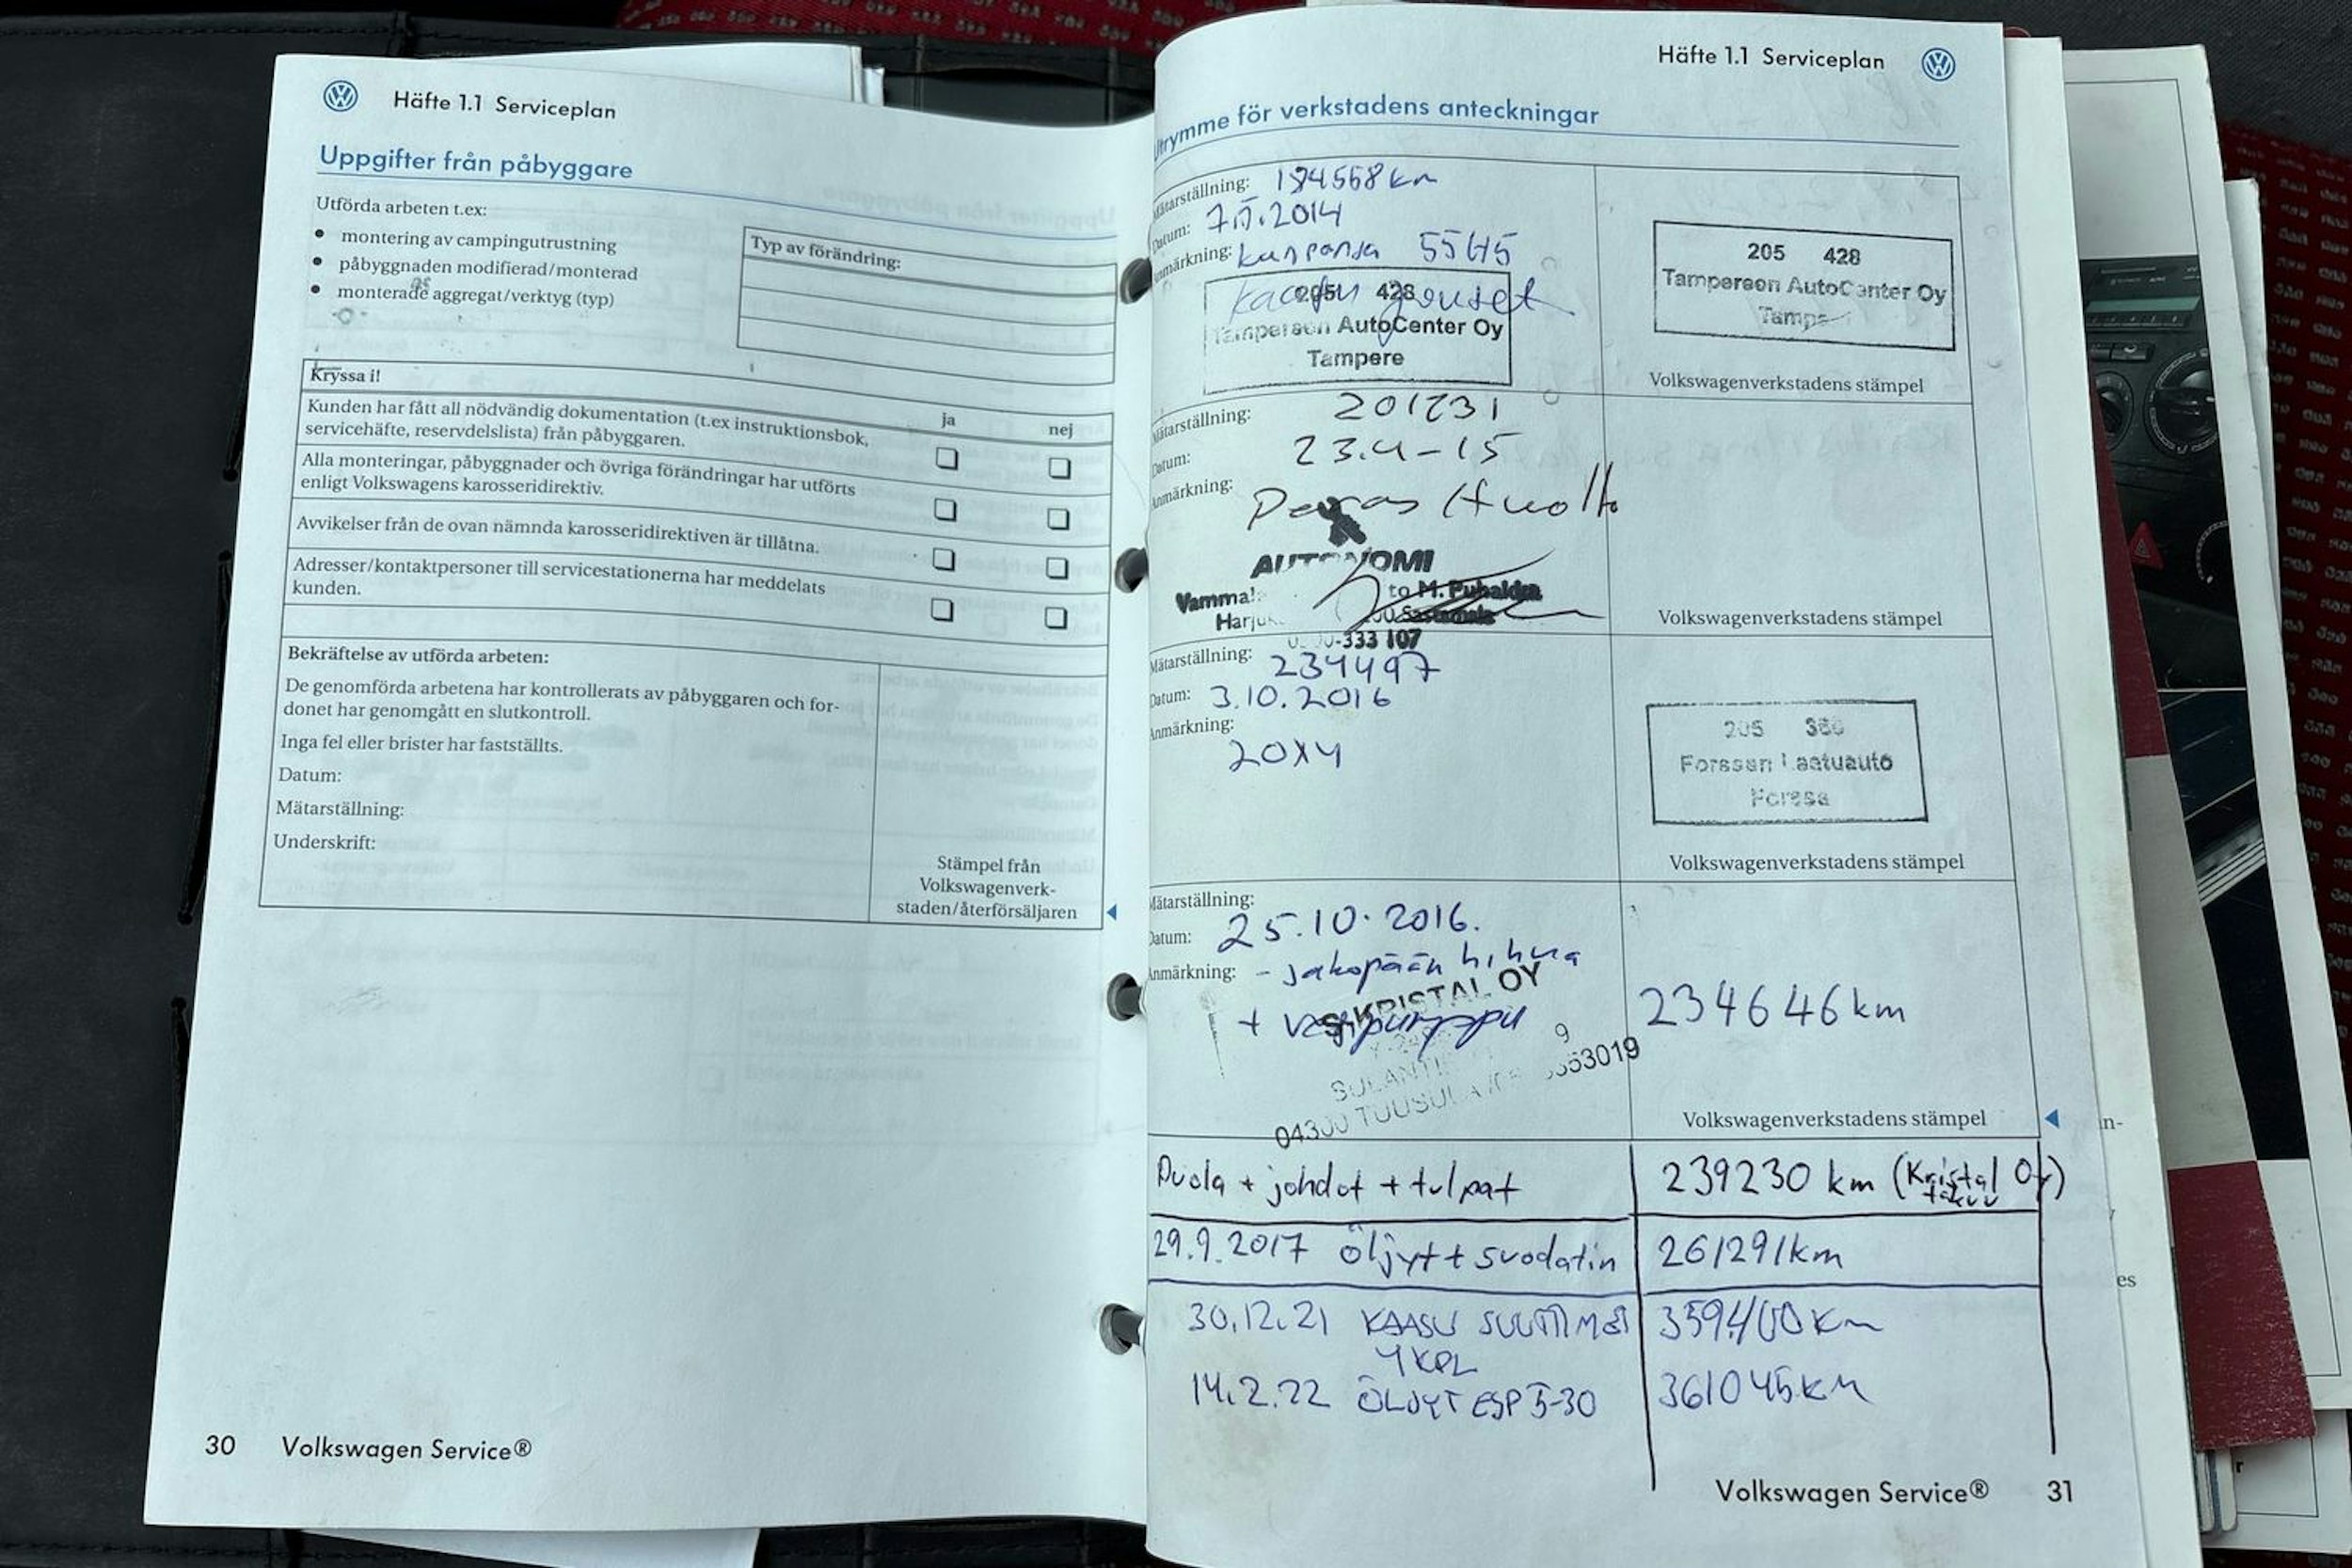 Häfte 1.1 Serviceplan
Uppgifter från påbyggare
Utförda arbeten t.ex:
• montering av campingutrustning
• påbyggnaden modifierad/monterad
• monterade aggregat/verktyg (typ)
Typ av förändring:
Kryssa i!
ja
nej
Kunden har fått all nödvändig dokumentation (t.ex instruktionsbok,
servicehäfte, reservdelslista) från påbyggaren.
Alla monteringar, påbyggnader och övriga förändringar har utförts
enligt Volkswagens karosseridirektiv.
Avvikelser från de ovan nämnda karosseridirektiven är tillåtna.
Adresser/kontaktpersoner till servicestationerna har meddelats
kunden.
Bekräftelse av utförda arbeten:
De genomförda arbetena har kontrollerats av påbyggaren och for-
donet har genomgått en slutkontroll.
Inga fel eller brister har fastställts.
Datum:
Mätarställning:
Underskrift:
Stämpel från
Volkswagenverk-
staden/återförsäljaren
30 Volkswagen Service®
Häfte 1.1 Serviceplan
Utrymme för verkstadens anteckningar
Mätarställning: 184568 km
Datum: 2014
Anmärkning: 55H5
205 428
Tampereen AutoCenter Oy
Tampere
205 428
Tampereen AutoCenter Oy
Volkswagenverkstadens stämpel
Mätarställning: 201231
Datum: 23.4-15
Anmärkning: Perus Huolto
AUTONOMI
to M. Puhakka
Sastamala
-333 107
Volkswagenverkstadens stämpel
Mätarställning: 234497
Datum: 3.10.2016
Anmärkning:
20X4
205
Forssan Laatuauto
Forssa
Volkswagenverkstadens stämpel
Mätarställning:
Datum: 25.10.2016.
Anmärkning: - jakopään hihna
+ vesipumppu
KRISTAL OY
04300 TUUSULA
234646 km
Volkswagenverkstadens stämpel
Puola + johdot + tulpat 239230 km (Kristal Oy)
takuu
29.9.2017 Öljyt + suodatin 261291km
30.12.21 KAASU SUUTTIMET
4 KPL
14.2.22 ÖLJYT ESP 5-30 361045 KM
Volkswagen Service® 31